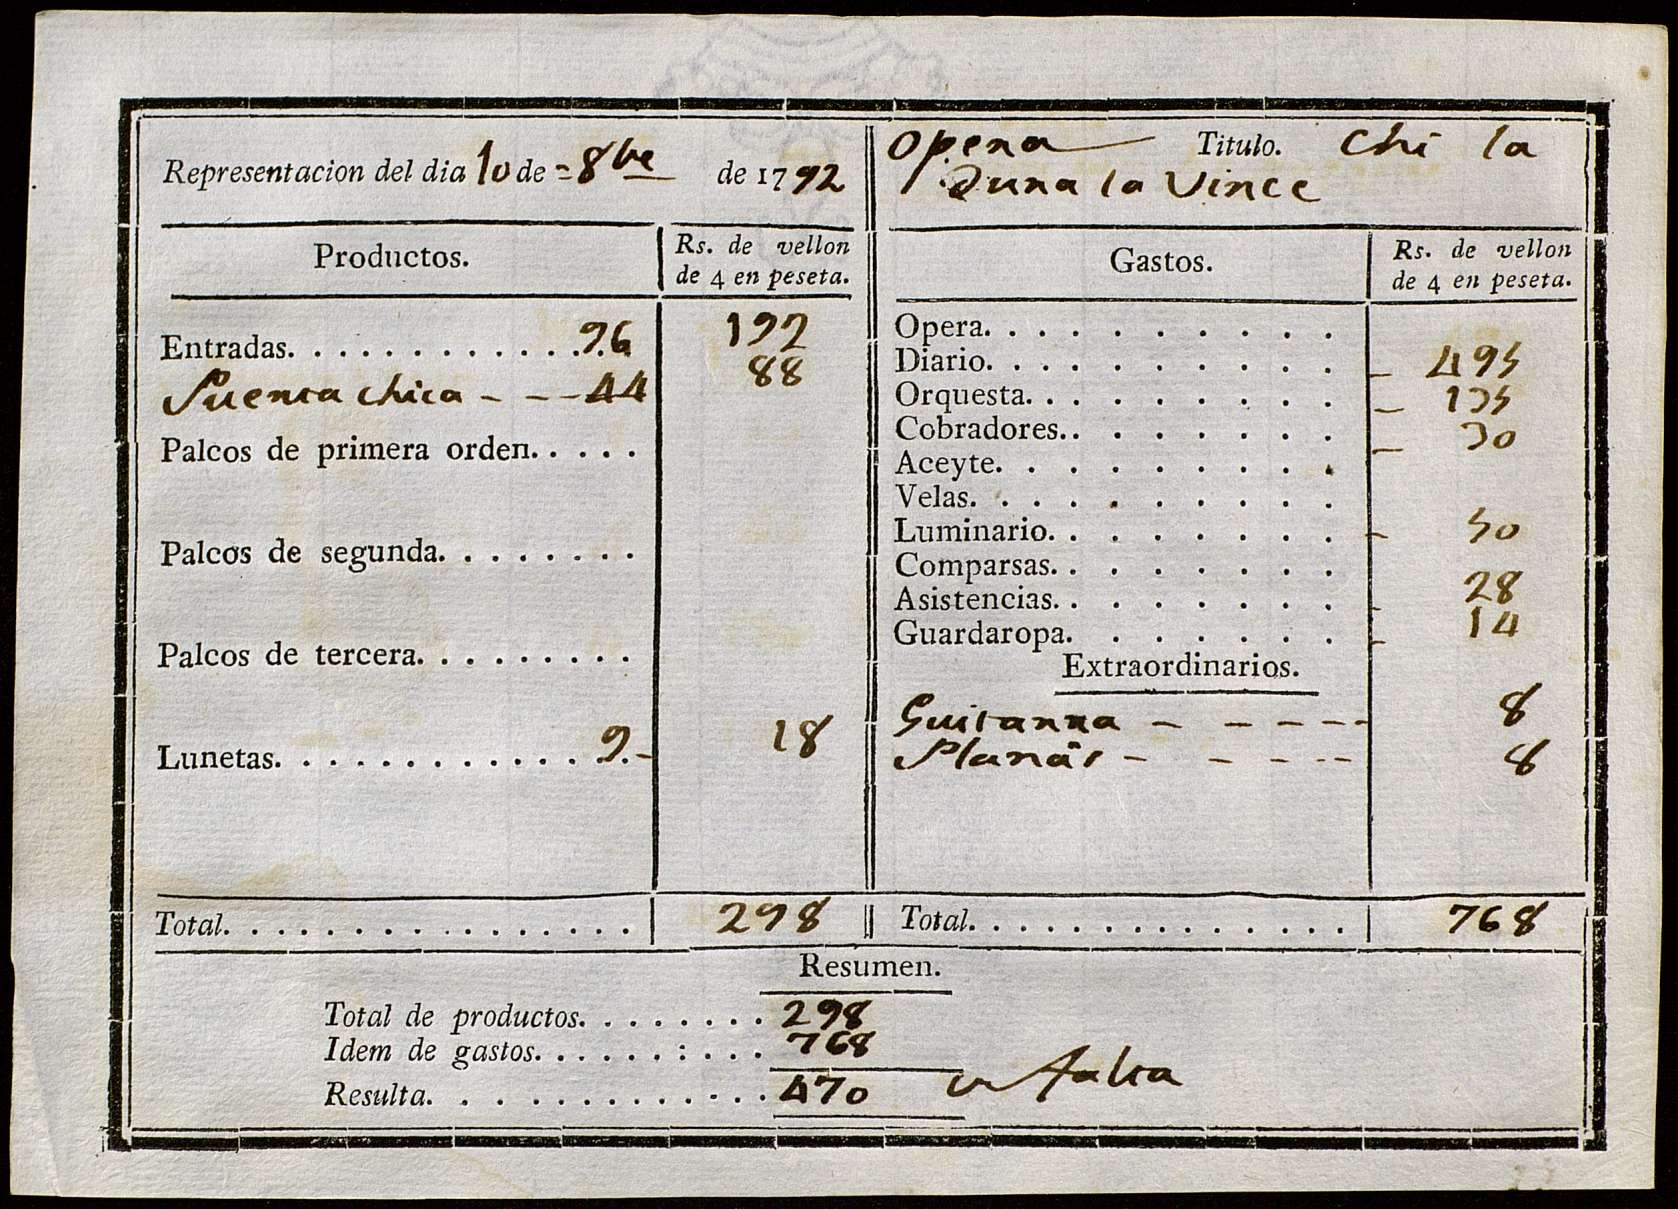 Representacion del dia 10 de = 8bre de 1792
Productos.
Rs. de vellon
de 4 en peseta.
Entradas. . . . . . . . . . . . . 96 192
Puerta chica - - - 44 88
Palcos de primera orden. . . . .
Palcos de segunda. . . . . . . .
Palcos de tercera. . . . . . . . .
Lunetas. . . . . . . . . . . . . 9. - 18
Total. . . . . . . . . . . . . . . . 298
Opera Titulo. Chi la
Dura la Vince
Gastos.
Rs. de vellon
de 4 en peseta.
Opera. . . . . . . . . .
Diario. . . . . . . . . . 495
Orquesta. . . . . . . . . 135
Cobradores. . . . . . . . 30
Aceyte. . . . . . . . .
Velas. . . . . . . . . .
Luminario. . . . . . . . 50
Comparsas. . . . . . . .
Asistencias. . . . . . . . 28
Guardaropa. . . . . . . 14
Extraordinarios.
Guitarra - - - - - 8
Planâs - - - - - 8
Total. . . . . . . . . . . . . . . 768
Resumen.
Total de productos. . . . . . . . 298
Idem de gastos. . . . . . : . . . 768
Resulta. . . . . . . . . . . . . . 470 falta